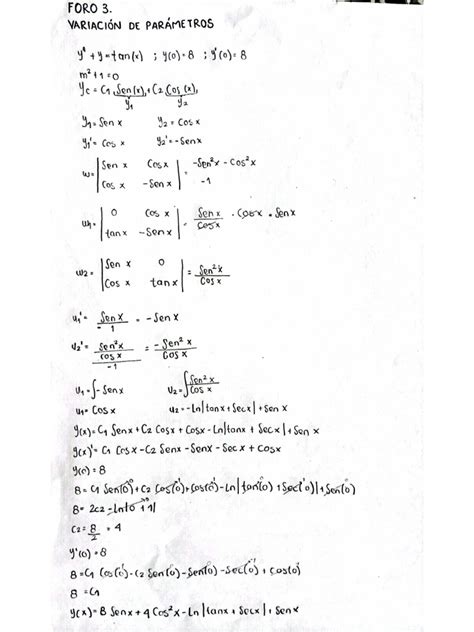 FORO 3.
VARIACIÓN DE PARÁMETROS
y" + y = tan(x) ; y(0)=8 ; y'(0)=8
m²+1=0
yc = C1 Sen(x) + C2 Cos(x),
y1 y2
y1= Sen x y2= Cos x
y1'= Cos x y2'= -Sen x
w= |Sen x Cos x| = -Sen²x - Cos²x
|Cos x -Sen x| -1
w1= |0 Cos x| = Sen x/Cos x · Cos x = Sen x
|tan x -Sen x|
w2= |Sen x 0| = Sen²x/Cos x
|Cos x tan x|
u1'= Sen x/-1 = -Sen x
u2'= Sen²x/Cos x/-1 = -Sen²x/Cos x
u1=∫-Sen x u2=∫Sen²x/Cos x
u1= Cos x u2= -Ln|tan x + Sec x| + Sen x
y(x)= C1 Sen x + C2 Cos x + Cos x - Ln|tan x + Sec x| + Sen x
y(x)'= C1 Cos x - C2 Sen x - Sen x - Sec x + Cos x
y(0)=8
8= C1 Sen(0) + C2 Cos(0) + Cos(0) - Ln|tan(0) + Sec(0)| + Sen(0)
8= 2C2 - Ln|0+1|
C2= 8/2 = 4
y'(0)=8
8= C1 Cos(0) - C2 Sen(0) - Sen(0) - Sec(0) + Cos(0)
8 = C1
y(x)= 8 Sen x + 4 Cos²x - Ln|tan x + Sec x| + Sen x